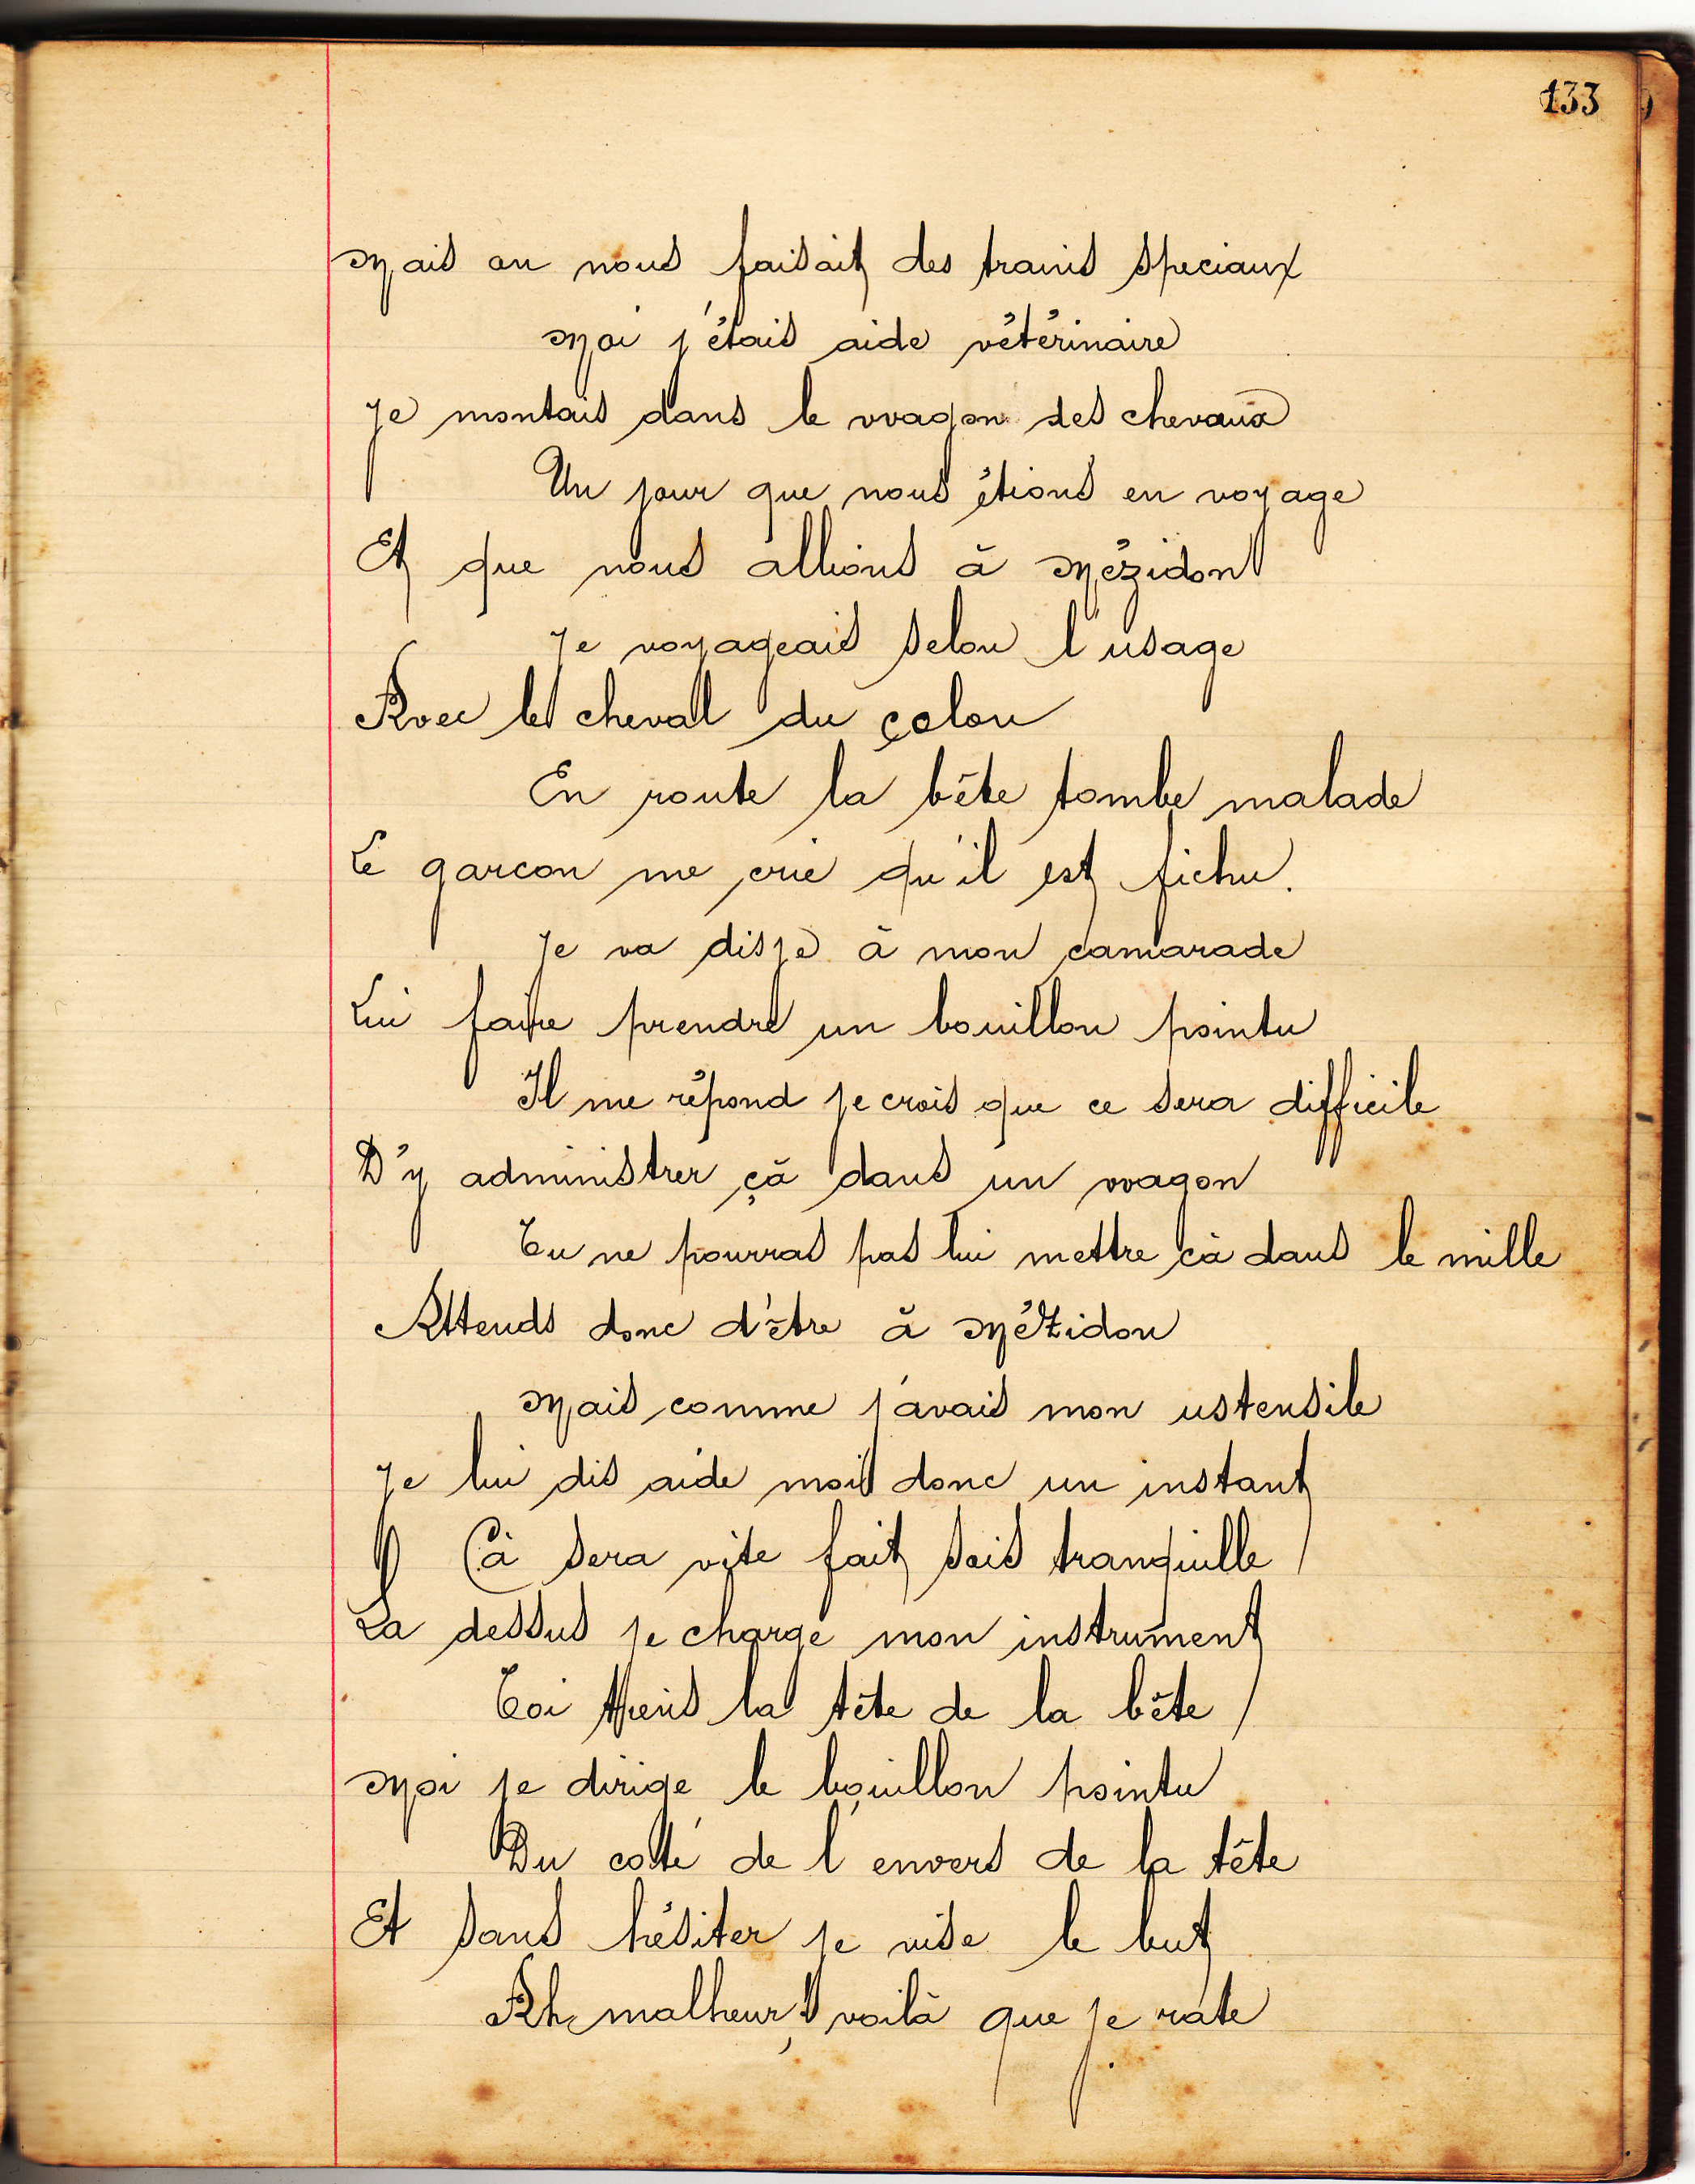 133
Mais on nous faisait des trains speciaux
Moi j'étais aide vétérinaire
Je montais dans le wagon des chevaux
Un jour que nous étions en voyage
Et que nous allions à Mézidon
Je voyageais selon l'usage
Avec le cheval du colon
En route la bête tombe malade
Le garcon me crie qu'il est fichu.
Je va dis je à mon camarade
Lui faire prendre un bouillon pointu
Il me répond je crois que ce sera difficile
D'y administrer çà dans un wagon
Tu ne pourras pas lui mettre çà dans le mille
Attends donc d'être à Mézidon
Mais comme j'avais mon ustensile
Je lui dis aide moi donc un instant
Cà sera vite fait sois tranquille
La dessus je charge mon instrument
Toi tiens la tête de la bête
Moi je dirige le bouillon pointu
Du cotté de l'envers de la tête
Et sans hésiter je vise le but
Ah malheur, voilà que je rate